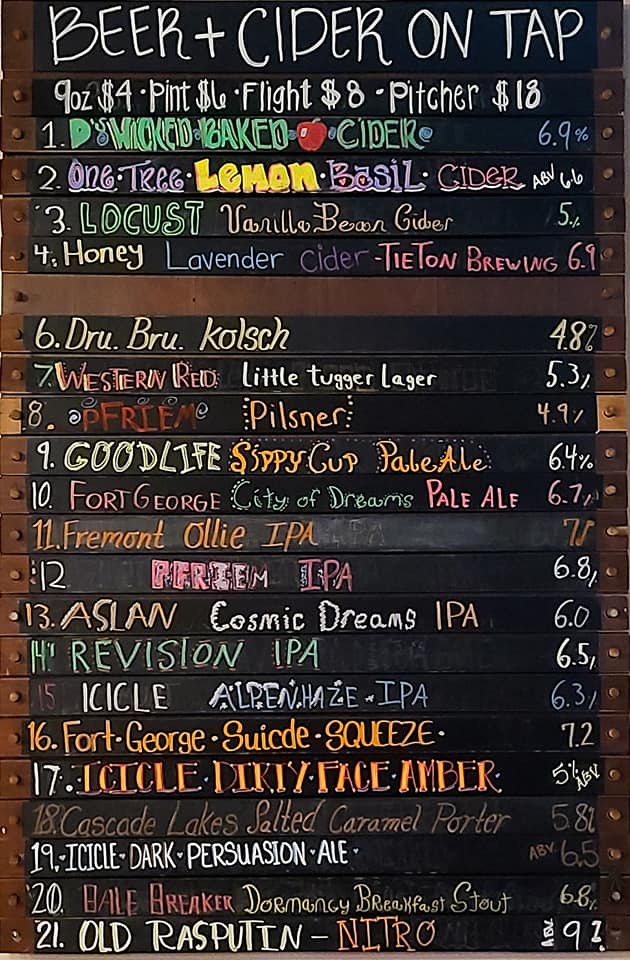 BEER + CIDER ON TAP
9oz $4 · Pint $6 · Flight $8 · Pitcher $18
1. D's WICKED BAKED CIDER 6.9%
2. One · Tree · Lemon · Basil · CIDER ABV 6.6
3. LOCUST Vanilla Bean Cider 5%
4. Honey Lavender Cider - TIETON BREWING 6.9
6. Dru. Bru. Kolsch 4.8%
7. WESTERN RED Little tugger Lager 5.3%
8. PFRIEM Pilsner 4.9%
9. GOODLIFE Sippy Cup Pale Ale 6.4%
10. FORT GEORGE City of Dreams PALE ALE 6.7%
11. Fremont Ollie IPA
12 PFRIEM IPA 6.8%
13. ASLAN Cosmic Dreams IPA 6.0
14 REVISION IPA 6.5%
15 ICICLE ALPENHAZE - IPA 6.3%
16. Fort · George · Suicde · SQUEEZE · 7.2
17. ICICLE · DIRTY · FACE · AMBER 5% ABV
18. Cascade Lakes Salted Caramel Porter 5.8%
19. · ICICLE · DARK · PERSUASION · ALE · ABV 6.5
20. BALE BREAKER Dormancy Breakfast Stout 6.8%
21. OLD RASPUTIN - NITRO ABV 9%